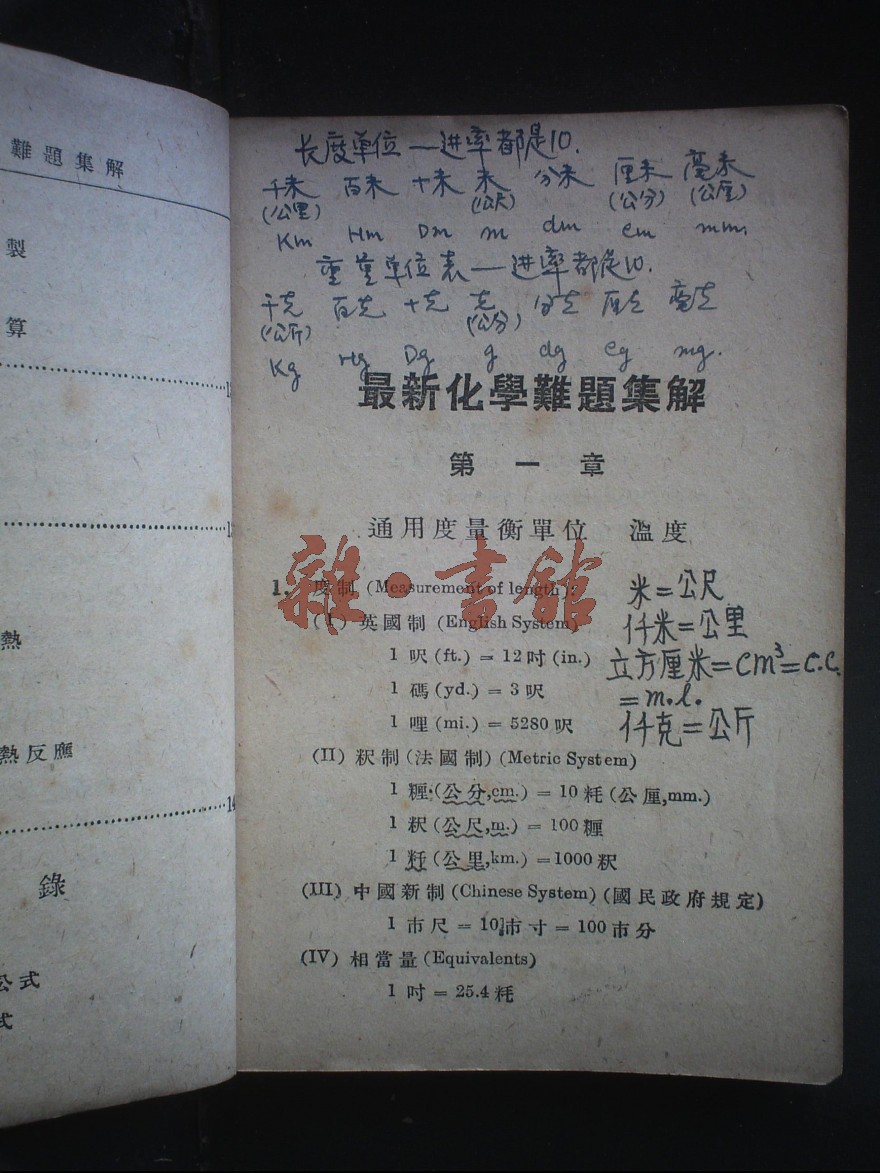 難題集解
製
算
熱
熱反應
錄
公式
式
长度单位—进率都是10.
千米 百米 十米 米 分米 厘米 毫米
(公里) (公尺) (公分) (公厘)
Km Hm Dm m dm cm mm.
重量单位表—进率都是10.
千克 百克 十克 克 分克 厘克 毫克
(公斤) (公分)
Kg Hg Dg g dg cg mg.
最新化學難題集解
第一章
通用度量衡單位 溫度
1. 度制 (Measurement of length):
米=公尺
(I) 英國制 (English System)
仟米=公里
1 呎 (ft.) = 12 吋 (in.)
立方厘米=cm³=c.c.
1 碼 (yd.) = 3 呎
=m.l.
1 哩 (mi.) = 5280 呎
仟克=公斤
(II) 粎制 (法國制) (Metric System)
1 糎 (公分,cm.) = 10 粍 (公厘,mm.)
1 粎 (公尺,m.) = 100 糎
1 粁 (公里,km.) = 1000 粎
(III) 中國新制 (Chinese System) (國民政府規定)
1 市尺 = 10 市寸 = 100 市分
(IV) 相當量 (Equivalents)
1 吋 = 25.4 粍
雜·書館